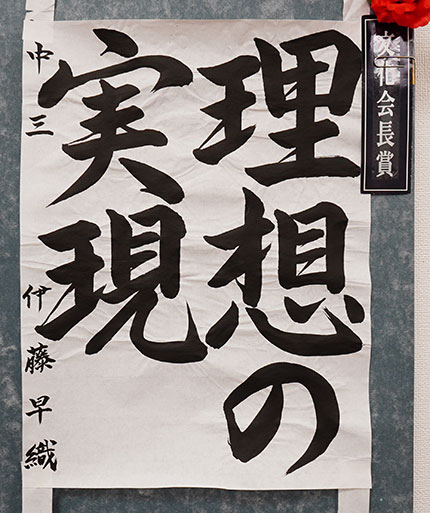 理想の
実現
中三 伊藤早織
文化会長賞